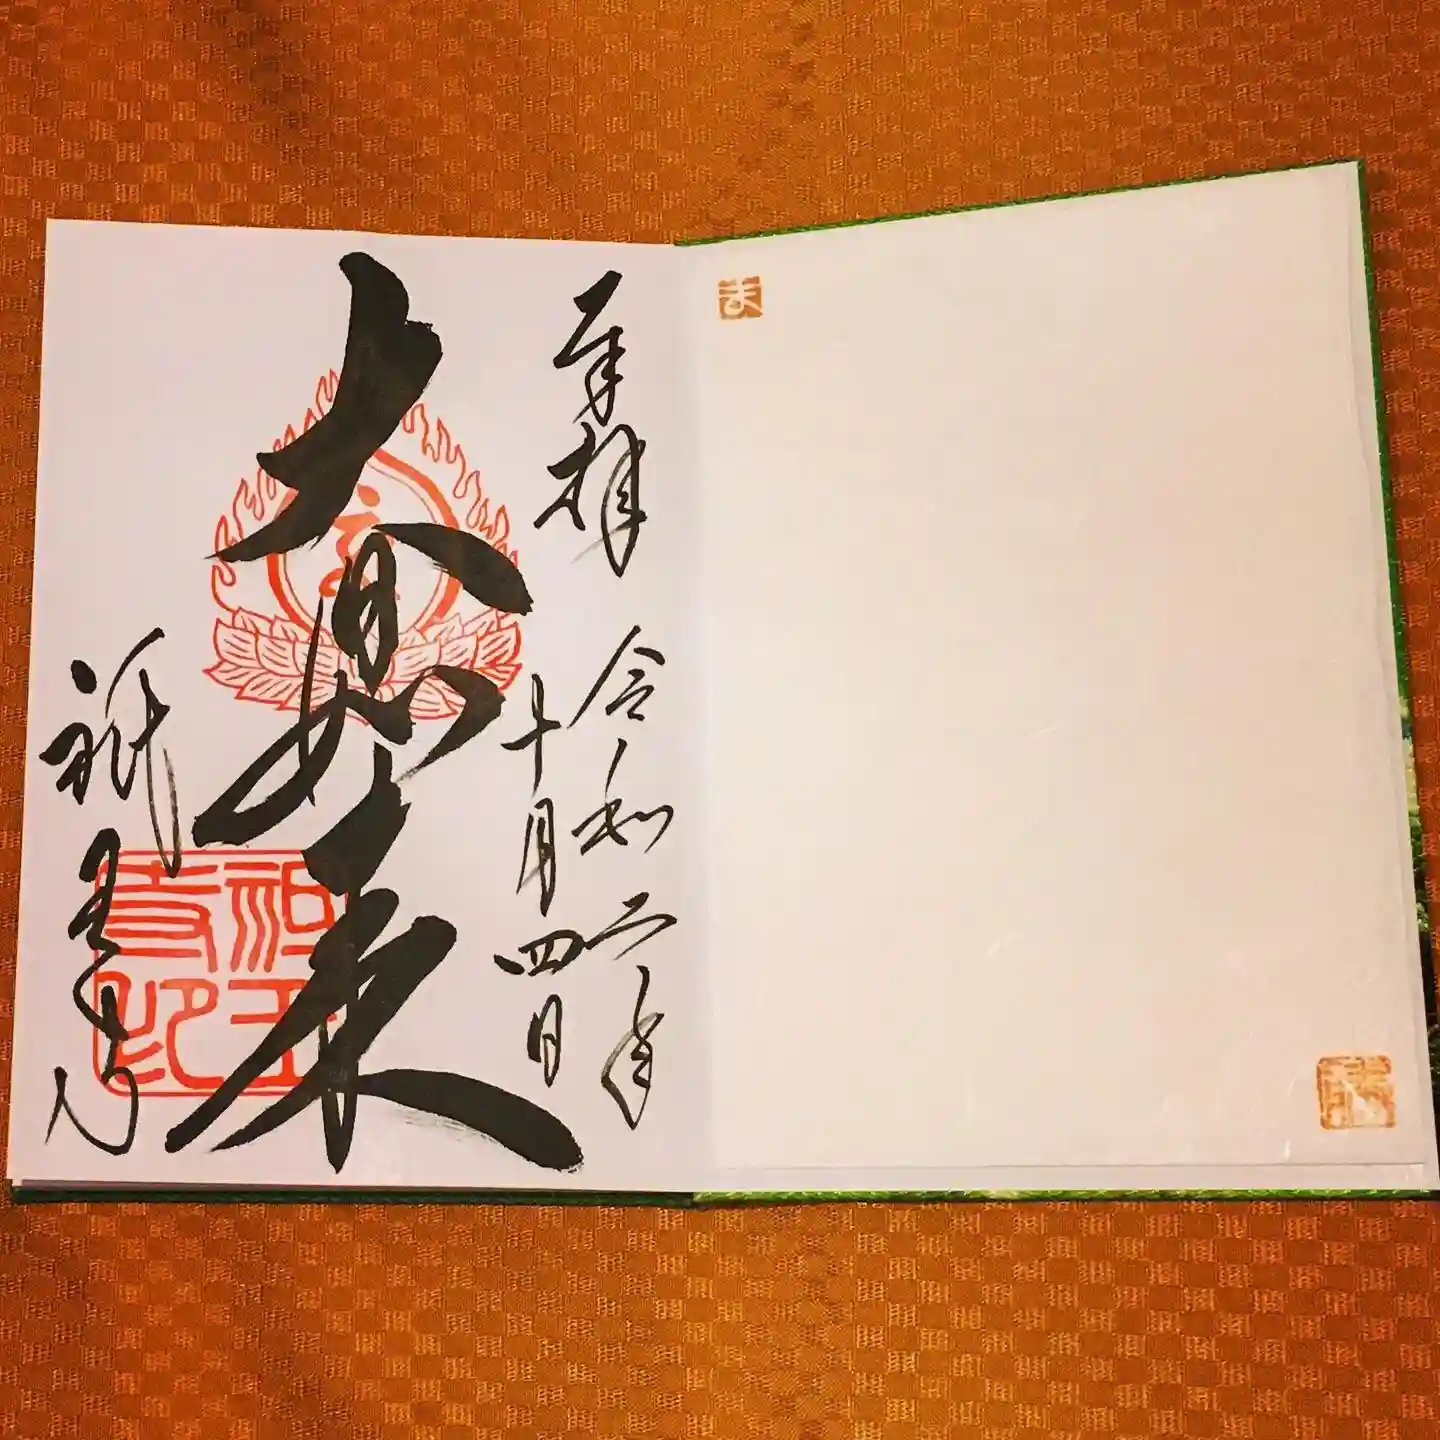 奉拝
令和二年
十月四日
大日如来
祇王寺
祇王
寺印